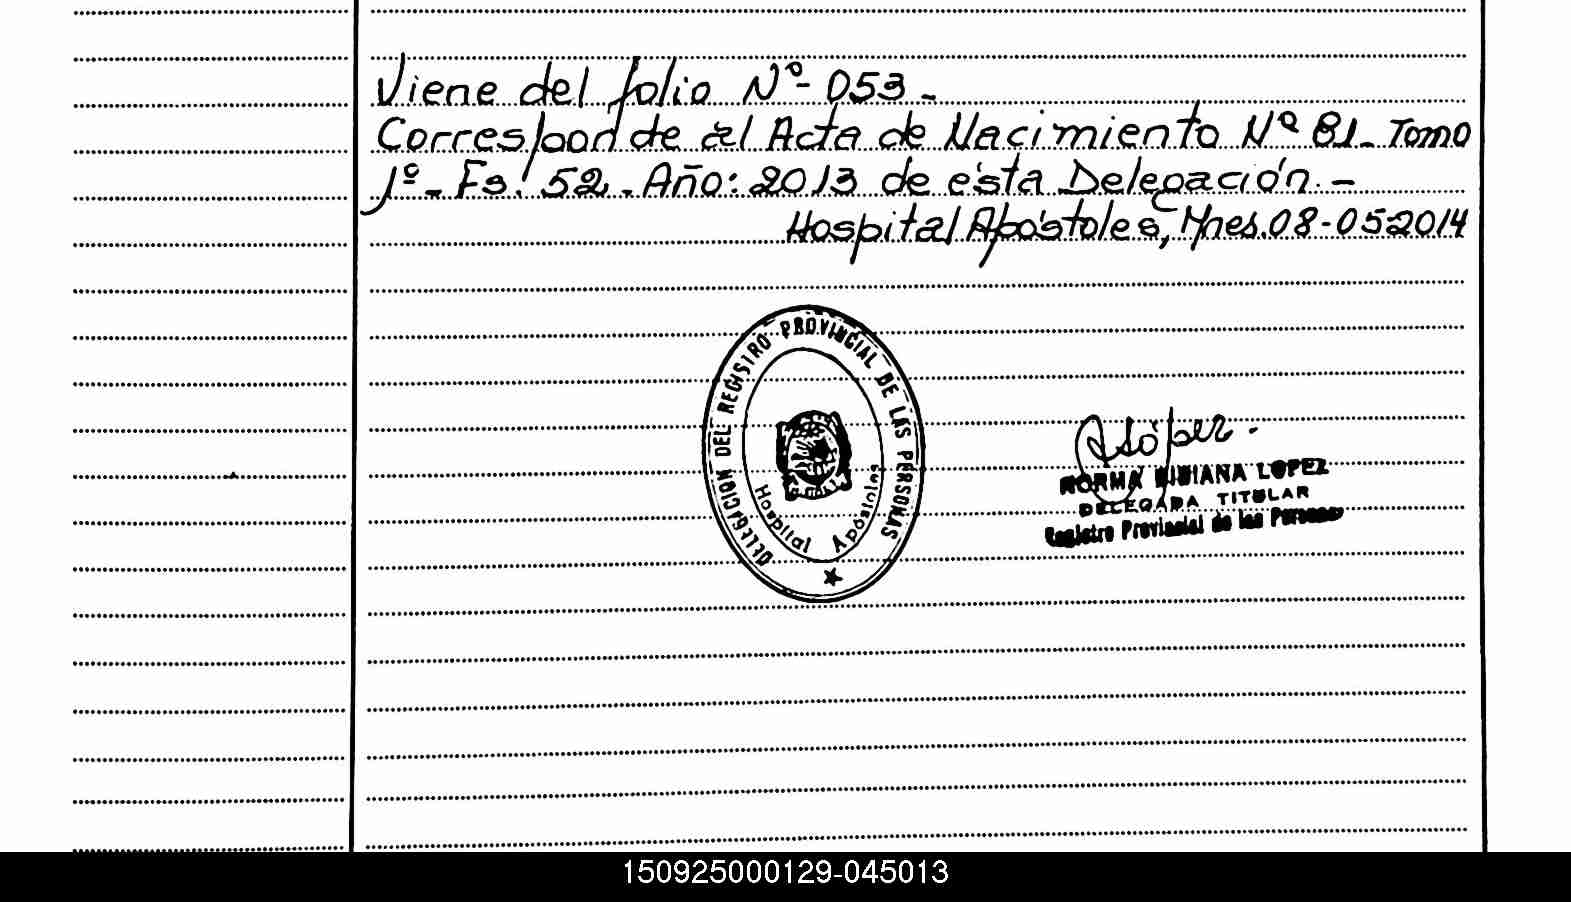 Viene del folio Nº- 053.-
Corresponde al Acta de Nacimiento Nº 81. Tomo
1º. Fs: 52. Año: 2013 de ésta Delegación.-
Hospital Apóstoles, Mnes. 08-05-2014
DELEGACION DEL REGISTRO PROVINCIAL DE LAS PERSONAS
Hospital Apóstoles
NORMA BIBIANA LOPEZ
DELEGADA TITULAR
Registro Provincial de las Personas
150925000129-045013